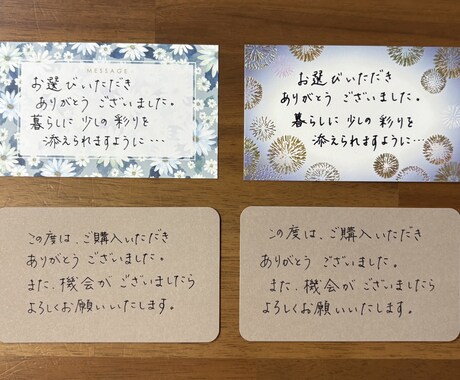 MESSAGE
お選びいただき
ありがとう ございました。
暮らしに 少しの 彩りを
添えられますように…
お選びいただき
ありがとう ございました。
暮らしに 少しの 彩りを
添えられますように…
この度は、ご購入いただき
ありがとう ございました。
また、機会が ございましたら
よろしくお願いいたします。
この度は、ご購入いただき
ありがとう ございました。
また、機会が ございましたら
よろしくお願いいたします。